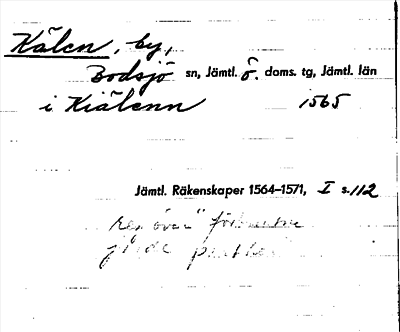 Kälen, by,
Bodsjö sn, Jämtl. ö. doms. tg, Jämtl. län
i Kiälenn 1565
Jämtl. Räkenskaper 1564–1571, I s. 112
över